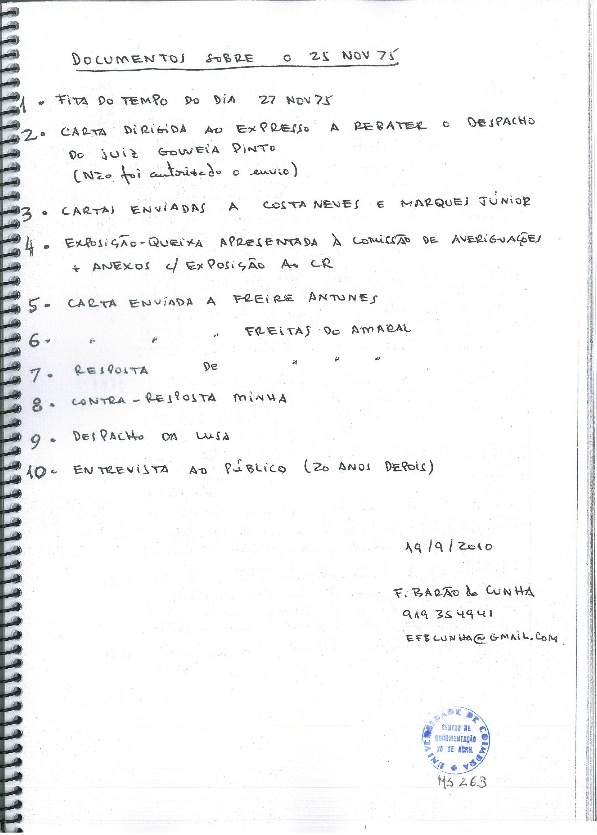 DOCUMENTOS SOBRE O 25 NOV 75
1 - FITA DO TEMPO DO DIA 27 NOV 75
2 - CARTA DIRIGIDA AO EXPRESSO A REBATER O DESPACHO
DO JUIZ GOUVEIA PINTO
(Não foi autorizado o envio)
3 - CARTAS ENVIADAS A COSTA NEVES E MARQUES JÚNIOR
4 - EXPOSIÇÃO-QUEIXA APRESENTADA À COMISSÃO DE AVERIGUAÇÕES
+ ANEXOS C/ EXPOSIÇÃO AO CR
5 - CARTA ENVIADA A FREIRE ANTUNES
6 - " " " FREITAS DO AMARAL
7 - RESPOSTA DE " " "
8 - CONTRA-RESPOSTA MINHA
9 - DESPACHO DA LUSA
10 - ENTREVISTA AO PÚBLICO (20 ANOS DEPOIS)
19/9/2010
F. BARÃO da CUNHA
919 354941
EFBCUNHA@GMAIL.COM
UNIVERSIDADE DE COIMBRA
CENTRO DE
DOCUMENTAÇÃO
25 DE ABRIL
MS 263